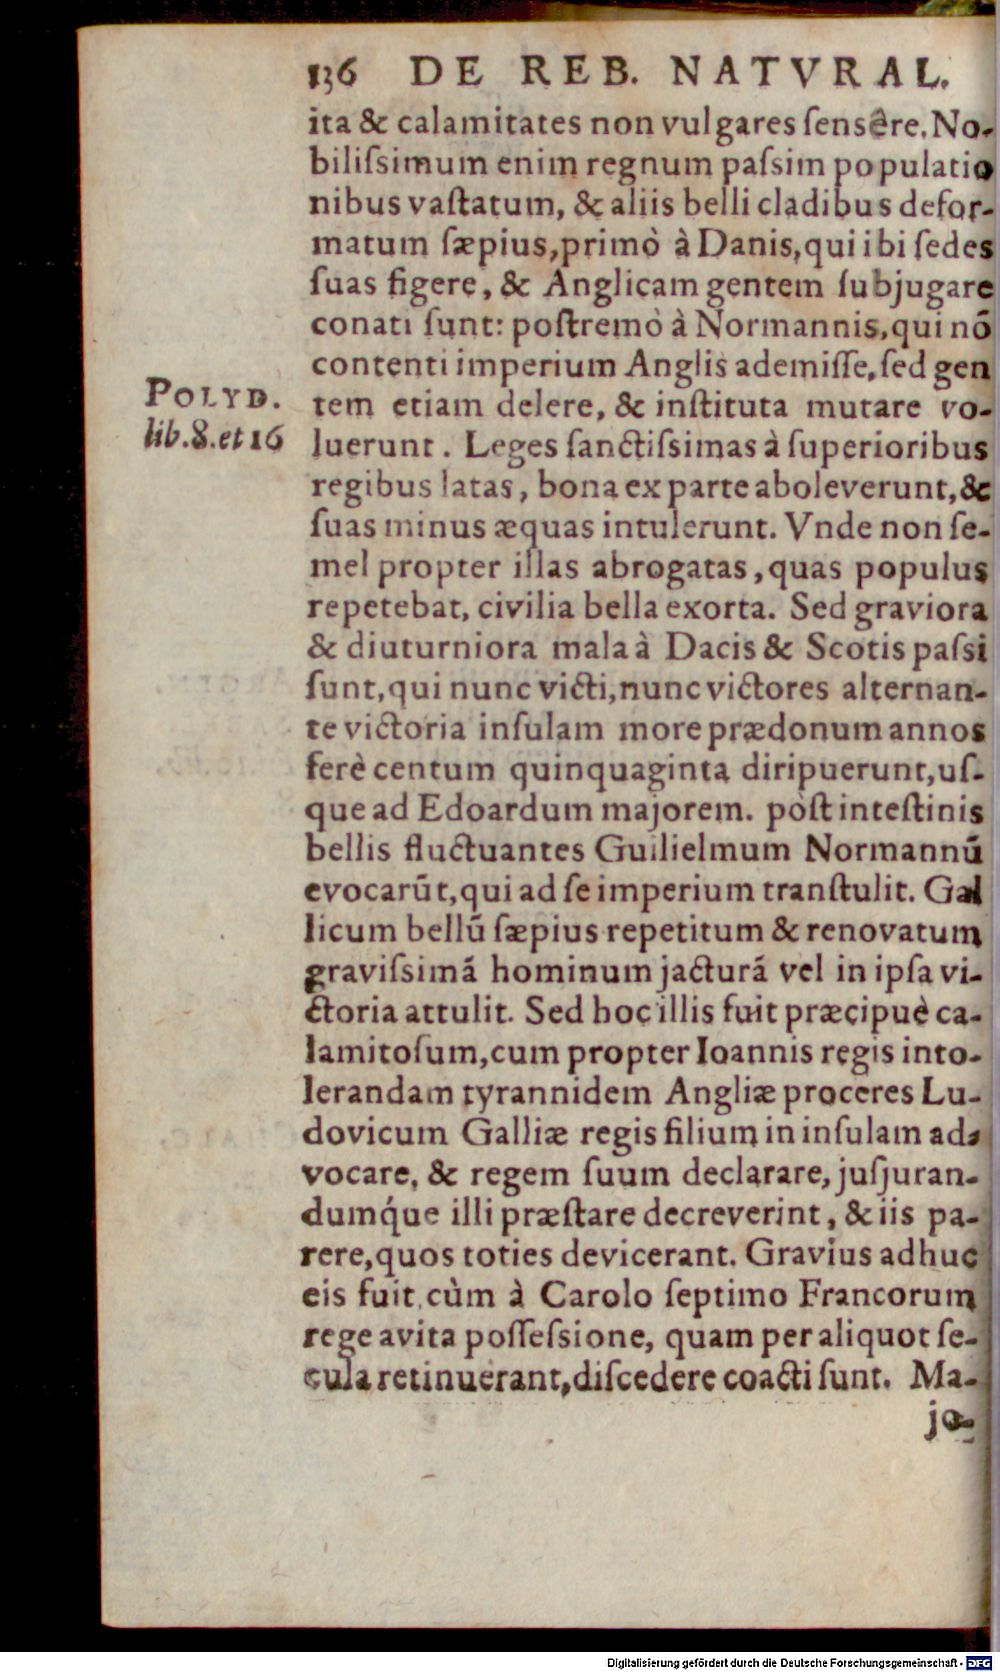 136 DE REB. NATVRAL.
ita & calamitates non vulgares ſensêre. No-
biliſsimum enim regnum paſsim populatio
nibus vaſtatum, & aliis belli cladibus defor-
matum ſæpius, primò à Danis, qui ibi ſedes
ſuas figere, & Anglicam gentem ſubjugare
conati ſunt: poſtremò à Normannis, qui nõ
contenti imperium Anglis ademiſſe, ſed gen
POLYD.
lib.8.et 16
tem etiam delere, & inſtituta mutare vo-
luerunt. Leges ſanctiſsimas à ſuperioribus
regibus latas, bona ex parte aboleverunt, &
ſuas minus æquas intulerunt. Vnde non ſe-
mel propter illas abrogatas, quas populus
repetebat, civilia bella exorta. Sed graviora
& diuturniora mala à Dacis & Scotis paſsi
ſunt, qui nunc victi, nunc victores alternan-
te victoria inſulam more prædonum annos
ferè centum quinquaginta diripuerunt, uſ-
que ad Edoardum majorem. pòſt inteſtinis
bellis fluctuantes Guilielmum Normannũ
evocarũt, qui ad ſe imperium tranſtulit. Gal
licum bellũ ſæpius repetitum & renovatum
graviſsimã hominum jacturã vel in ipſa vi-
ctoria attulit. Sed hoc illis fuit præcipuè ca-
lamitoſum, cum propter Ioannis regis into-
lerandam tyrannidem Angliæ proceres Lu-
dovicum Galliæ regis filium in inſulam ad-
vocare, & regem ſuum declarare, juſjuran-
dumq́ue illi præſtare decreverint, & iis pa-
rere, quos toties devicerant. Gravius adhuc
eis fuit, cùm à Carolo ſeptimo Francorum
rege avita poſſeſsione, quam per aliquot ſe-
cula retinuerant, diſcedere coacti ſunt. Ma-
jo-
Digitalisierung gefördert durch die Deutsche Forschungsgemeinschaft - DFG